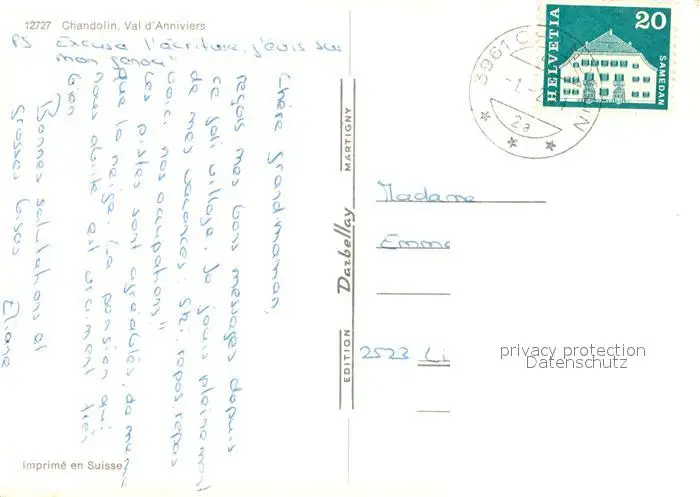 12727 Chandolin, Val d'Anniviers
PS Excuse l'écriture, j'suis sur
mon genou"
Chère grand-maman,
reçois mes bons messages depuis
ce joli village. Je jouis pleinement
de mes vacances. Ski, repos, repas
voici nos occupations"
Les pistes sont agréables, de même
que la neige. La pension qui
nous abrite est vraiment très
bien
Bonnes salutations et
grosses bises
Eliane
Imprimé en Suisse
EDITION Darbellay MARTIGNY
3961 C IN
-1.
2a
HELVETIA
20
SAMEDAN
Madame
Emma
2523 Li
privacy protection
Datenschutz